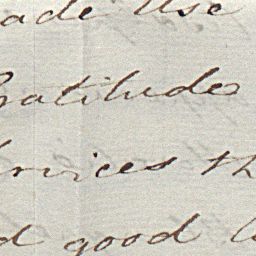 ade use
ratitude
ervices th
d good